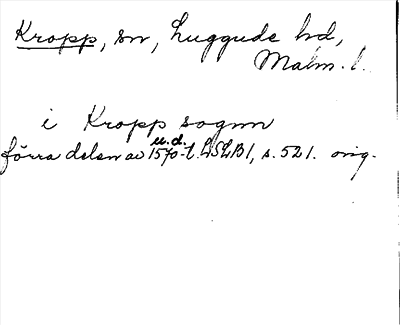 Kropp, sn, Luggude hd,
Malm. l.
i Kropp sognn
u. d.
förra delen av 1570-t. LSLB1, s. 521. orig.